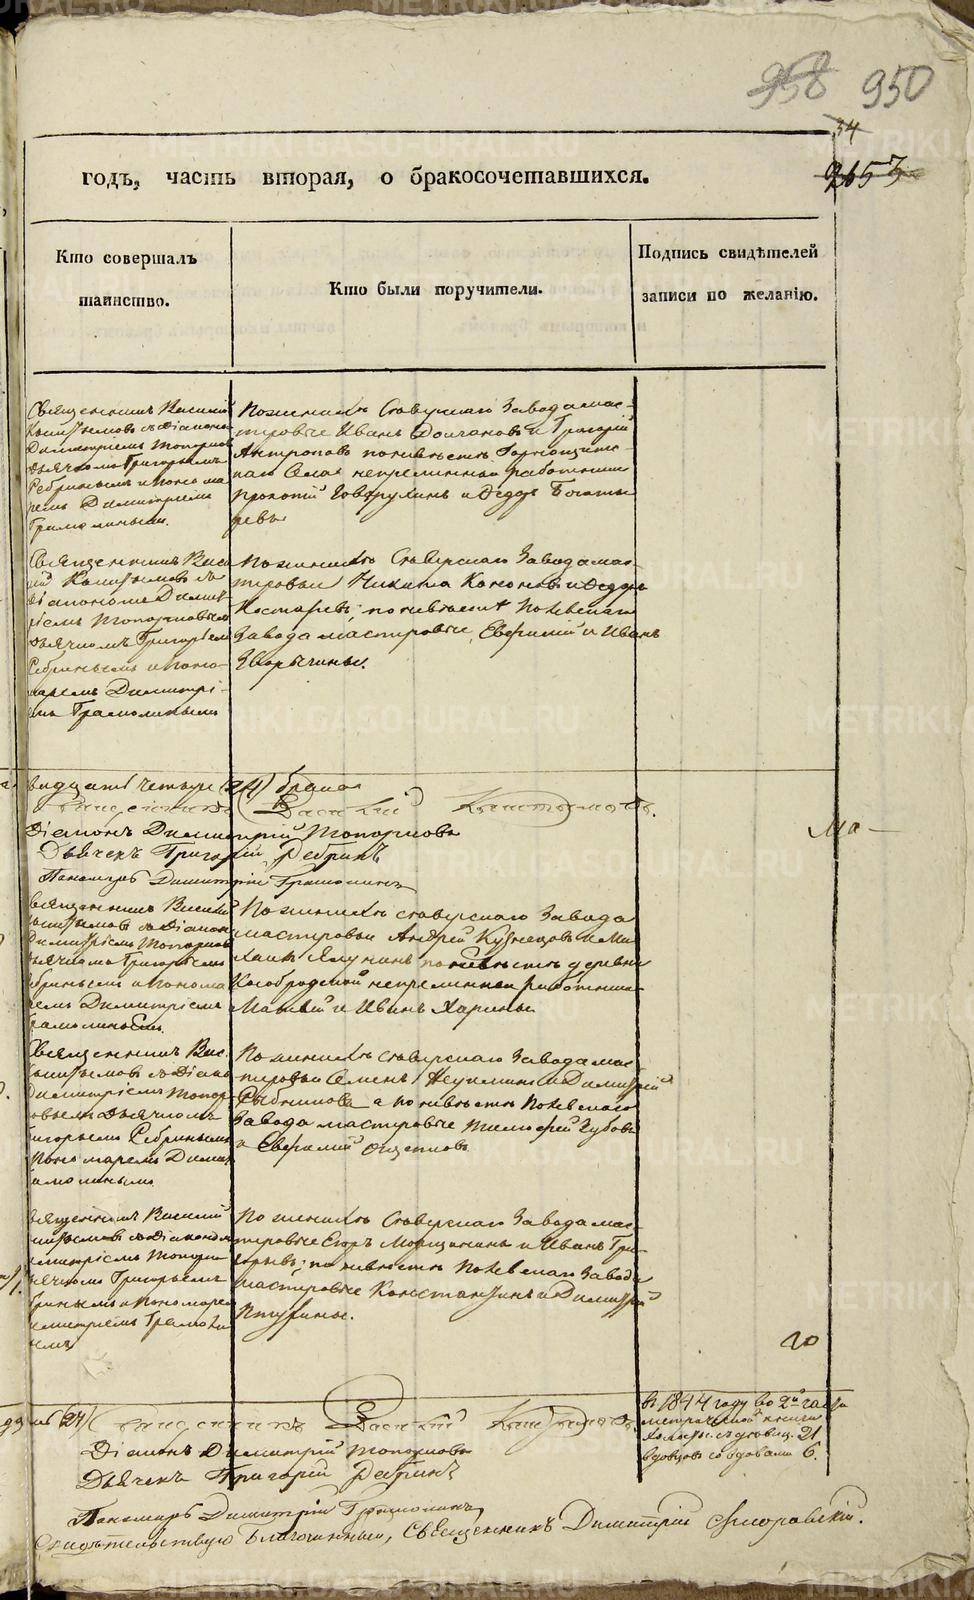 958 950
34
2653
годъ, часть вторая, о бракосочетавшихся.
Кто совершалъ таинство.
Кто были поручители.
Подпись свидѣтелей записи по желанію.
Священникъ Василій
съ діакономъ
Димитріемъ Топорковымъ
дьячкомъ Григорьемъ
Ребринымъ и понома
ремъ Димитріемъ
Грамолинымъ.
По женихѣ Сѣверскаго Завода мас-
теровые Иванъ Долгановъ и Григорій
Антроповъ по невѣстѣ Горнощитс-
каго Села непремѣнные работники
Прокопій и Ѳедоръ Богаты
ревъ
Священникъ Васи
лій съ
діакономъ Димит
ріемъ Топорковымъ
дьячкомъ Григорьемъ
Ребринымъ и поно-
маремъ Димитрі-
емъ Грамолинымъ
По женихѣ Сѣверскаго Завода мас-
теровые Никита Кононовъ и Ѳедоръ
Костаревъ; по невѣстѣ Полевскаго
Завода мастеровые Евфимій и Иванъ
Зворыгины.
двадцать четыре (24) брака
Священникъ Василій
Діаконъ Димитрій Топорковъ
Дьячекъ Григорій Ребринъ
Пономарь Димитрій Грамолинъ
Ма-
Священникъ Василій
съ Діакон
Димитріемъ Топорков
дьячкомъ Григорьемъ
Ребринымъ и понома
ремъ Димитріемъ
Грамолинымъ.
По женихѣ Сѣверскаго Завода
мастеровые Андрей Кузнецовъ и Ми
хаилъ Ялунинъ по невѣстѣ деревни
Кособродской непремѣнные работники
Матвей и Иванъ Харины
Священникъ Вас.
съ Діако
Димитріемъ Топор
ковымъ дьячкомъ
Григорьемъ Ребринымъ
Пономаремъ Димит
Грамолинымъ
По женихѣ Сѣверскаго Завода мас
теровые Семенъ и Димитрій
Рыбниковъ а по невѣстѣ Полевскаго
Завода мастеровые Тимофей Зубовъ
и Евфимій
Священникъ Василій
съ діаконом
Димитріемъ Топорк
дьячкомъ Григорьемъ
Ребринымъ и пономарем
Димитріемъ Грамоли
нымъ
По женихѣ Сѣверскаго Завода мас
теровые Егоръ и Иванъ Гри-
горьевъ; по невѣстѣ Полевскаго Завода
мастеровые Константинъ и Димитрій
Птухины.
20
(24) Священникъ Василій
Діаконъ Димитрій Топорковъ
Дьячекъ Григорій Ребринъ
Пономарь Димитрій Грамолинъ
въ 1844 году во 2й части
метрической книги
21
вдовцовъ со вдовами 6.
Свидѣтельствую Благочинный, Священникъ Димитрій